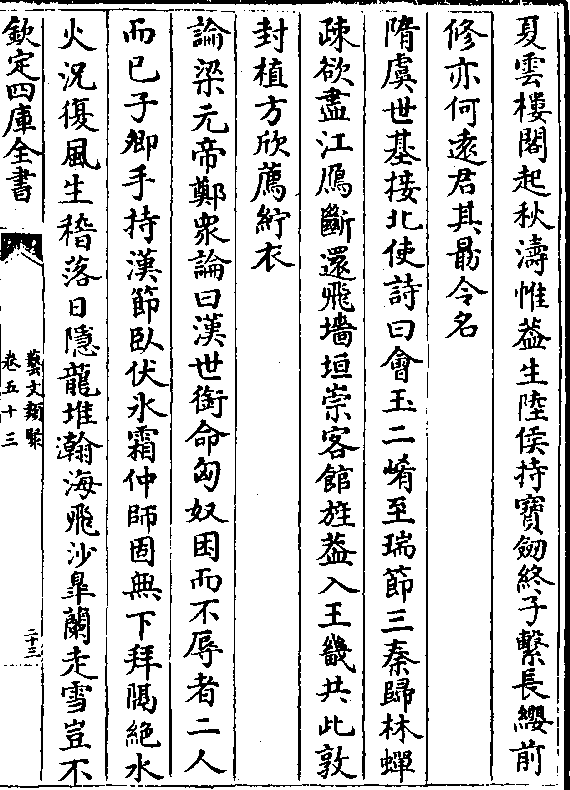 夏雲樓閣起秋濤帷葢生陸侯持寳劔終子繫長纓前
修亦何遠君其勗令名
隋虞世基接北使詩曰會玉二崤至瑞節三秦歸林蟬
疎欲盡江鴈斷還飛墻垣崇客館旌葢入王畿共此敦
封植方欣薦紵衣
論梁元帝鄭衆論曰漢世銜命匈奴困而不辱者二人
而已子卿手持漢節臥伏氷霜仲師固無下拜隔絶水
火況復風生稽落日隱龍堆瀚海飛沙臯蘭走雪豈不
欽定四庫全書
藝文類聚
卷五十三
二十三